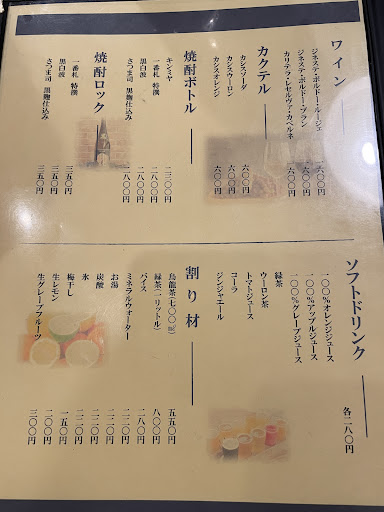 ワイン
ジネステ・ボルドー・ルージュ 一六〇〇円
ジネステ・ボルドー・ブラン 一六〇〇円
カリテラ・レセルヴァ・カベルネ 一六〇〇円
カクテル
カシスソーダ 六〇〇円
カシスウーロン 六〇〇円
カシスオレンジ 六〇〇円
焼酎ボトル
キンミヤ 二三〇〇円
一番札 特撰 一八〇〇円
黒白波 一八〇〇円
さつま司 黒麹仕込み 一八〇〇円
焼酎ロック
一番札 特撰 三五〇円
黒白波 三五〇円
さつま司 黒麹仕込み 三五〇円
ソフトドリンク
一〇〇%オレンジジュース
一〇〇%アップルジュース
一〇〇%グレープジュース
緑茶
ウーロン茶
トマトジュース
コーラ
ジンジャエール
各二八〇円
割り材
烏龍茶(七〇〇㎖) 五五〇円
緑茶(一リットル) 八〇〇円
バイス 二八〇円
ミネラルウォーター 二二〇円
お湯 二二〇円
炭酸 二二〇円
氷 二二〇円
梅干し 一五〇円
生レモン 二〇〇円
生グレープフルーツ 三〇〇円